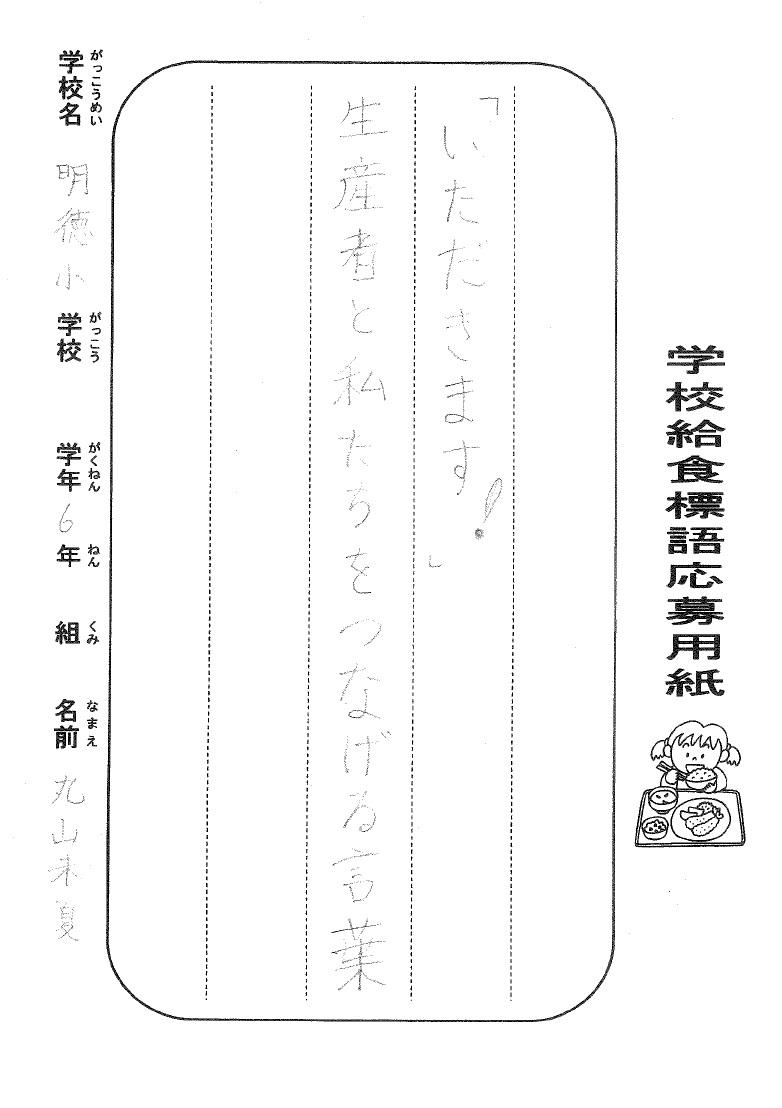 学校給食標語応募用紙
「いただきます!」
生産者と私たちをつなげる言葉
がっこうめい がっこう がくねん ねん くみ なまえ
学校名 明徳小 学校 学年 6 年 組 名前 丸山未夏